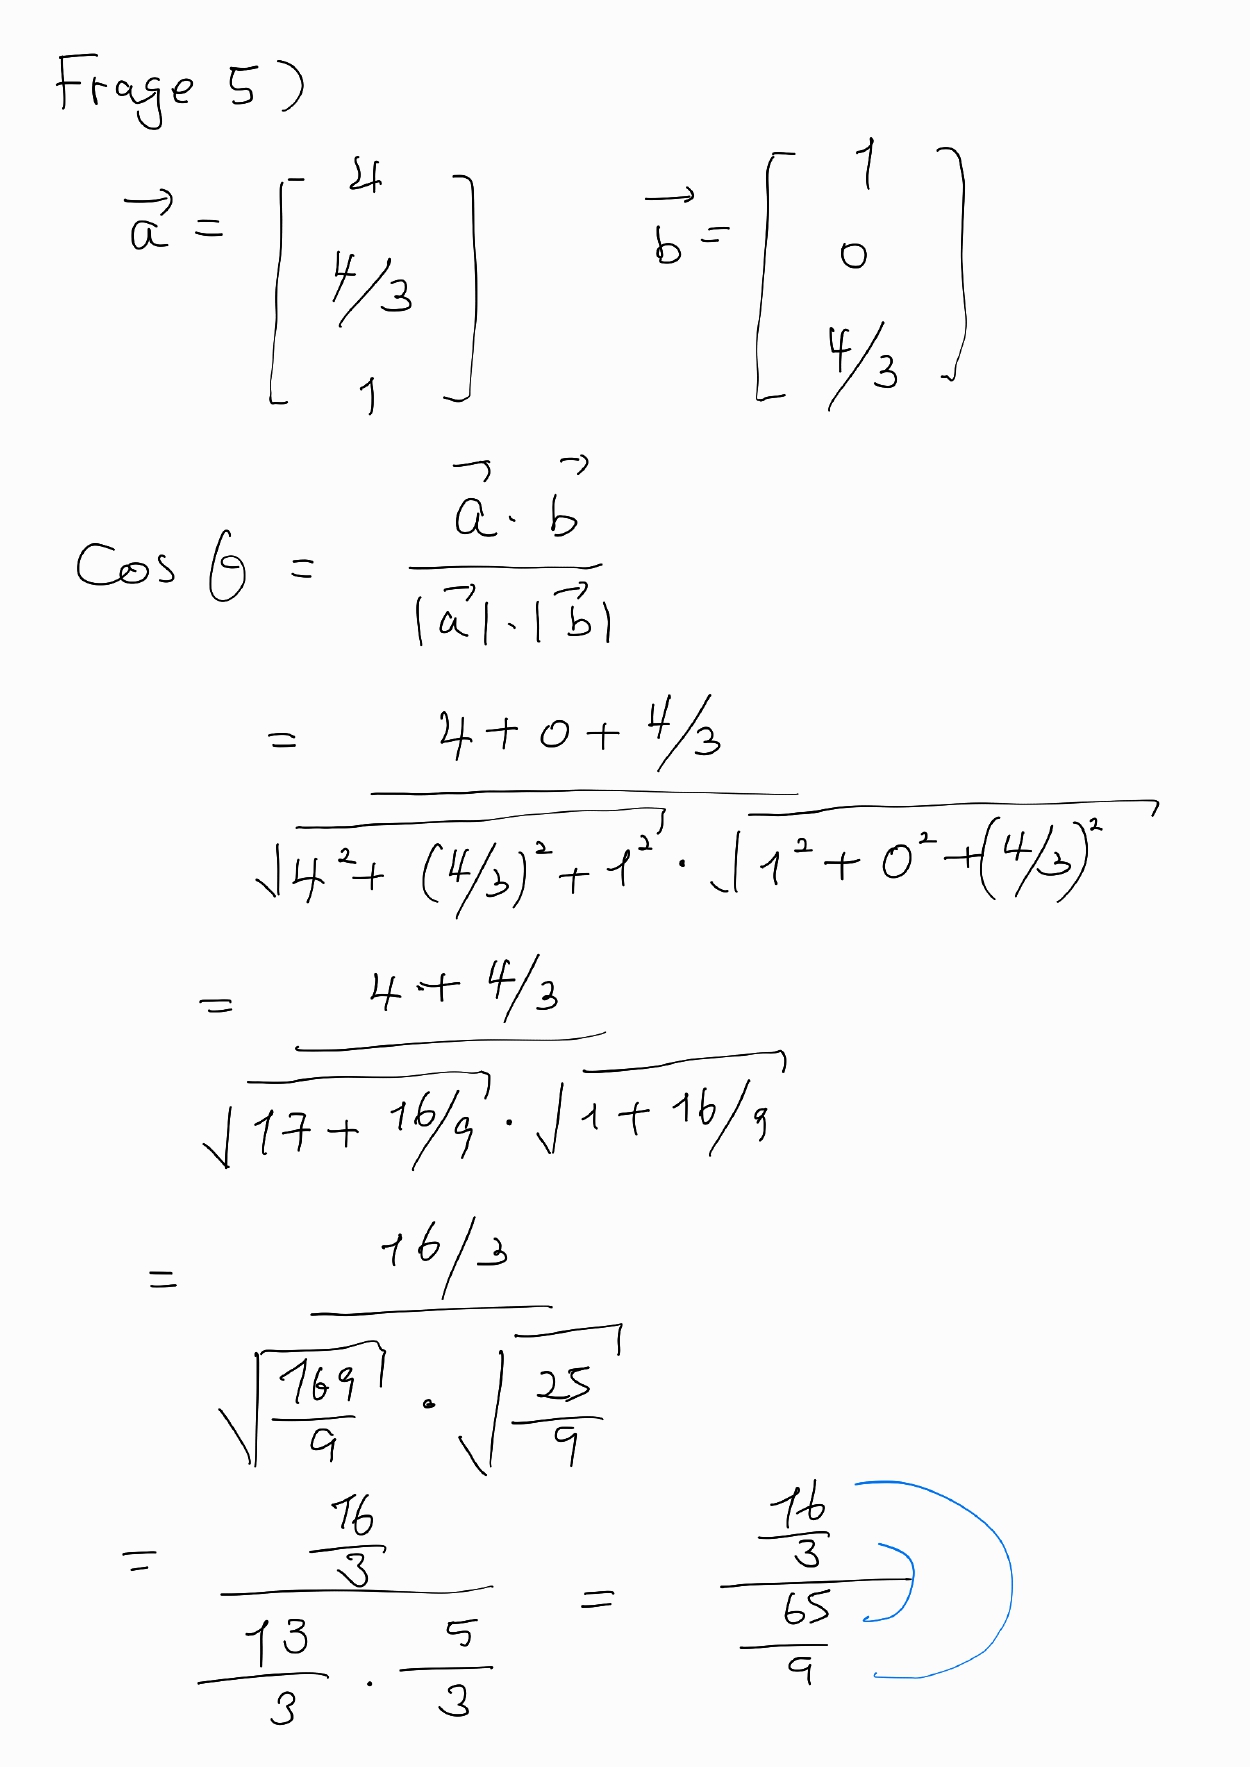 Frage 5)
→a = [ 4 4/3 1 ] →b = [ 1 0 4/3 ]
Cos θ = →a · →b / |→a| · |→b|
= 4 + 0 + 4/3 / √(4² + (4/3)² + 1²) · √(1² + 0² + (4/3)²)
= 4 + 4/3 / √(17 + 16/9) · √(1 + 16/9)
= 16/3 / √(169/9) · √(25/9)
= 16/3 / 13/3 · 5/3 = 16/3 / 65/9